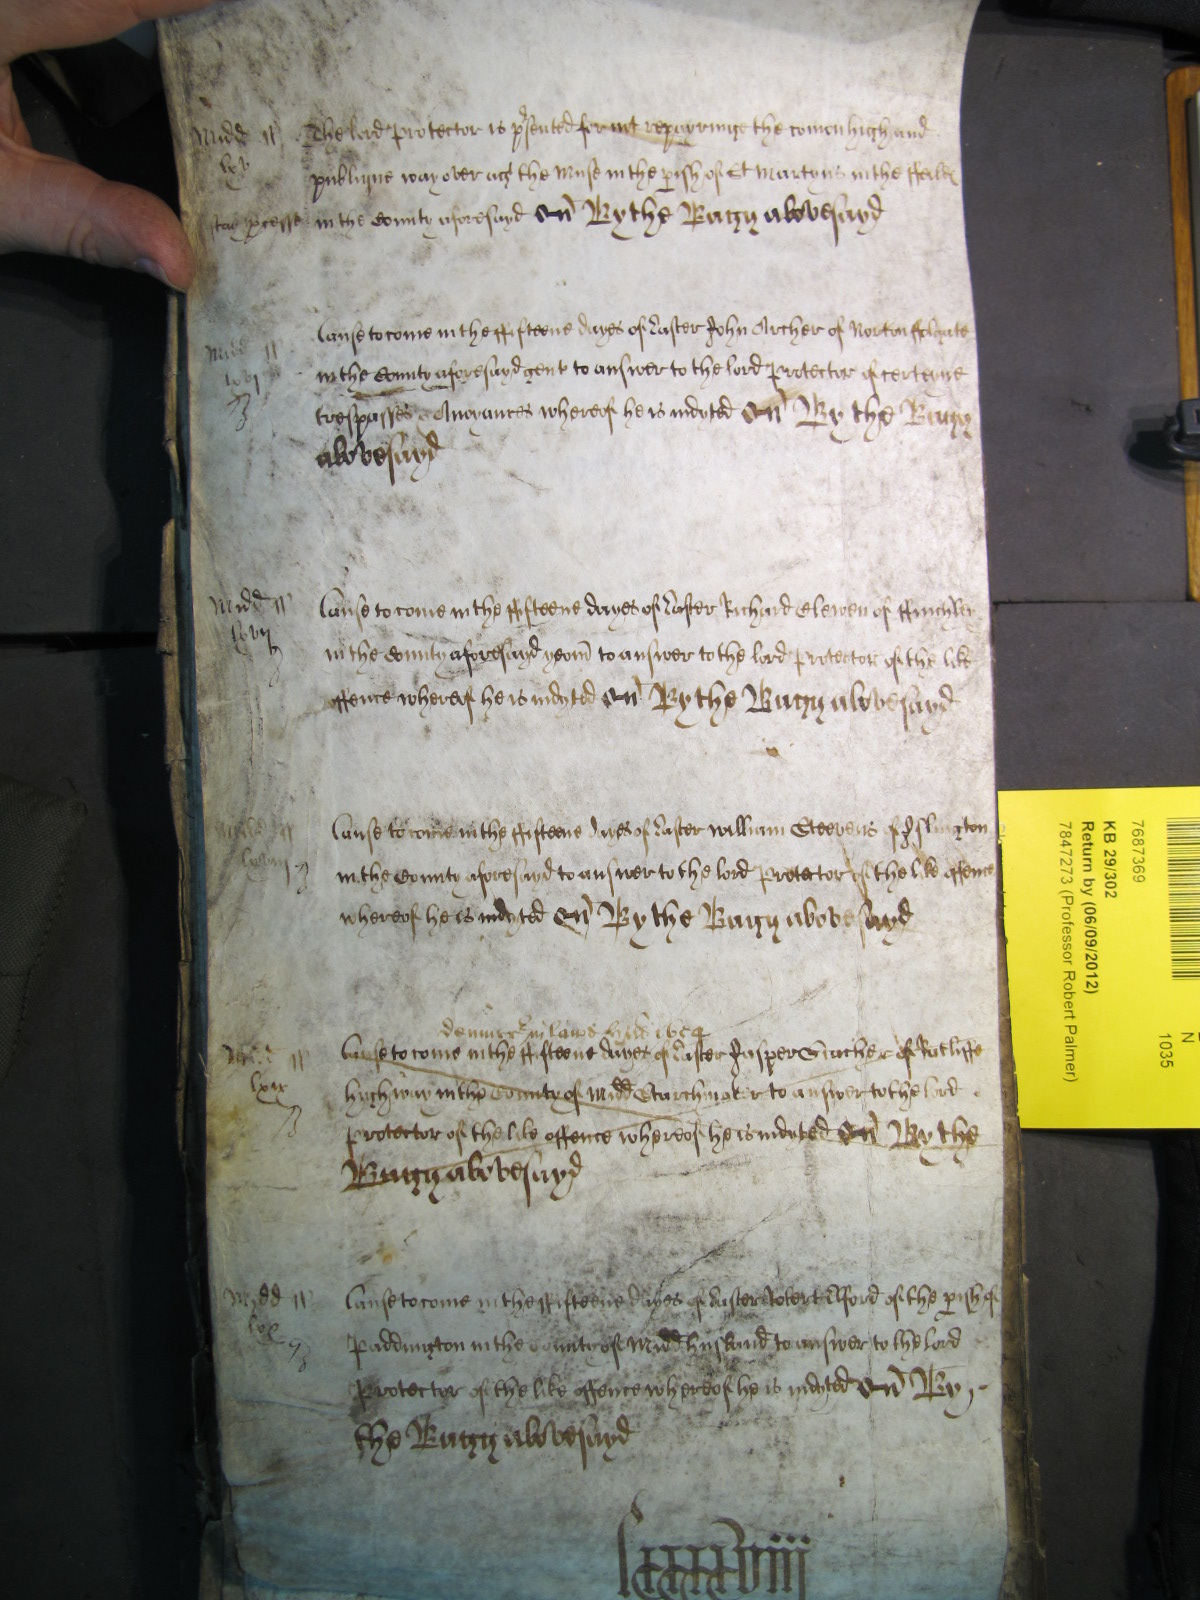 Midd ss The lord Protector is p'sented for not repayringe the comon high and
lxv publique way over agt the Muse in the p'ish of St Martyns in the ffeilds
stay p'cesse in the County aforesayd on' By the Bagg abovesayd
Midd ss Cause to come in the ffifteene dayes of Easter John Archer of Norton ffolgate
lxvj in the County aforesayd gent to answer to the lord Protector of certeyne
trespasses & Anoyances whereof he is indyted on' By the Bagg
abovesayd
Midd ss Cause to come in the ffifteene dayes of Easter Richard Elewen of ffinchley
lxvij in the County aforesayd yeom' to answer to the lord Protector of the like
offence whereof he is indyted on' By the Bagg abovesayd
Midd ss Cause to come in the ffifteene dayes of Easter William Steevens of Islington
lxviij in the County aforesayd to answer to the lord Protector of the like offence
whereof he is indyted on' By the Bagg abovesayd
1654
Midd ss Cause to come in the ffifteene dayes of Easter Jasper of Ratcliffe
lxix highway in the County of Midd Starchmaker to answer to the lord
Protector of the like offence whereof he is indyted on' By the
Bagg abovesayd
Midd ss Cause to come in the ffifteene dayes of Easter Robert Alford of the p'ish of
lxx Paddington in the County of Midd husband to answer to the lord
Protector of the like offence whereof he is indyted on' By
the Bagg abovesayd
lxxxxviij
7687369
KB 29/302
Return by (06/09/2012)
7847273 (Professor Robert Palmer)
N
1035